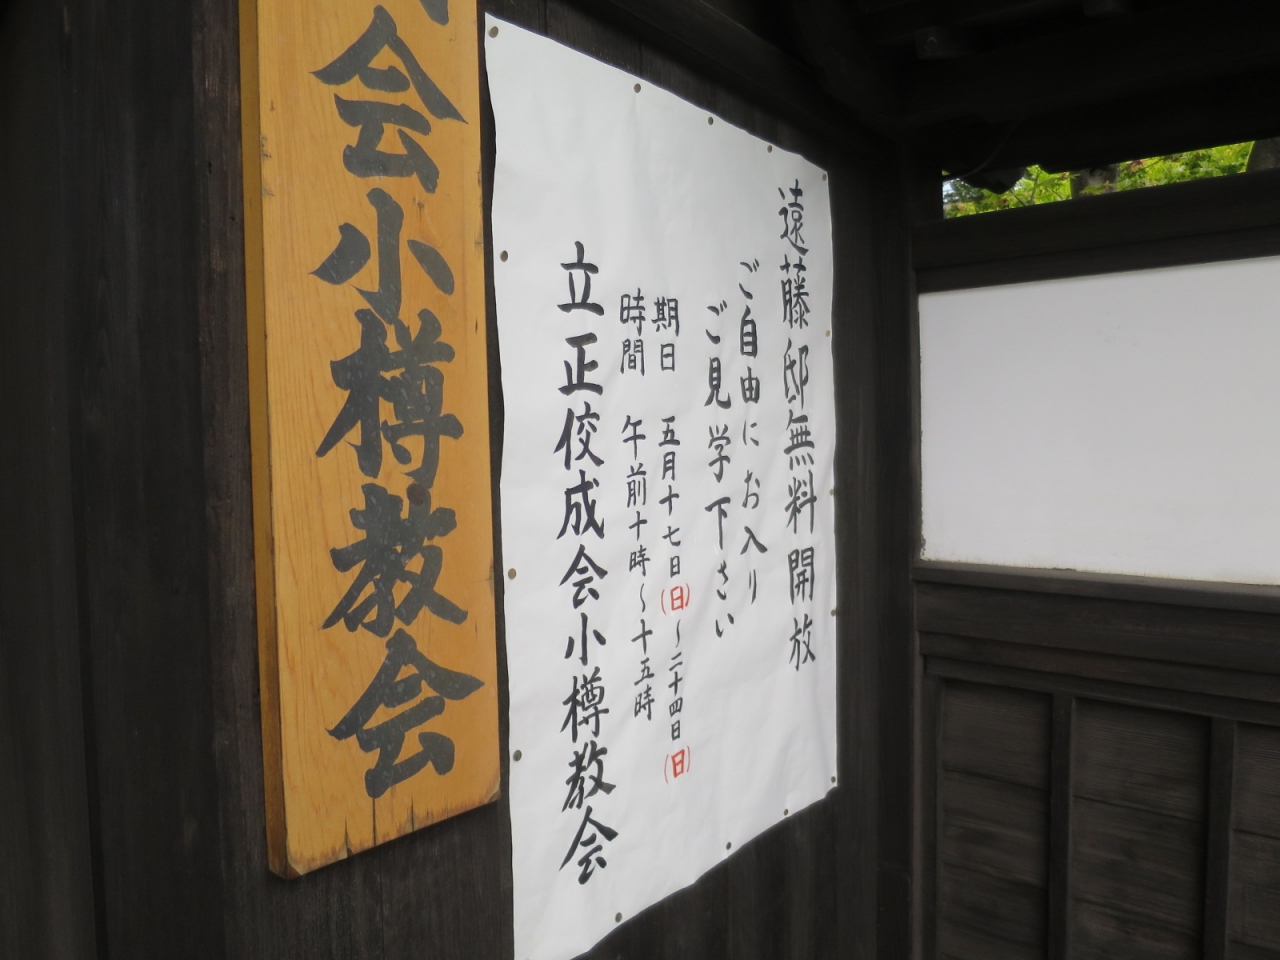 遠藤邸無料開放
ご自由にお入り
ご見学下さい
期日 五月十七日(日)~二十四日(日)
時間 午前十時~十五時
立正佼成会小樽教会
会小樽教会